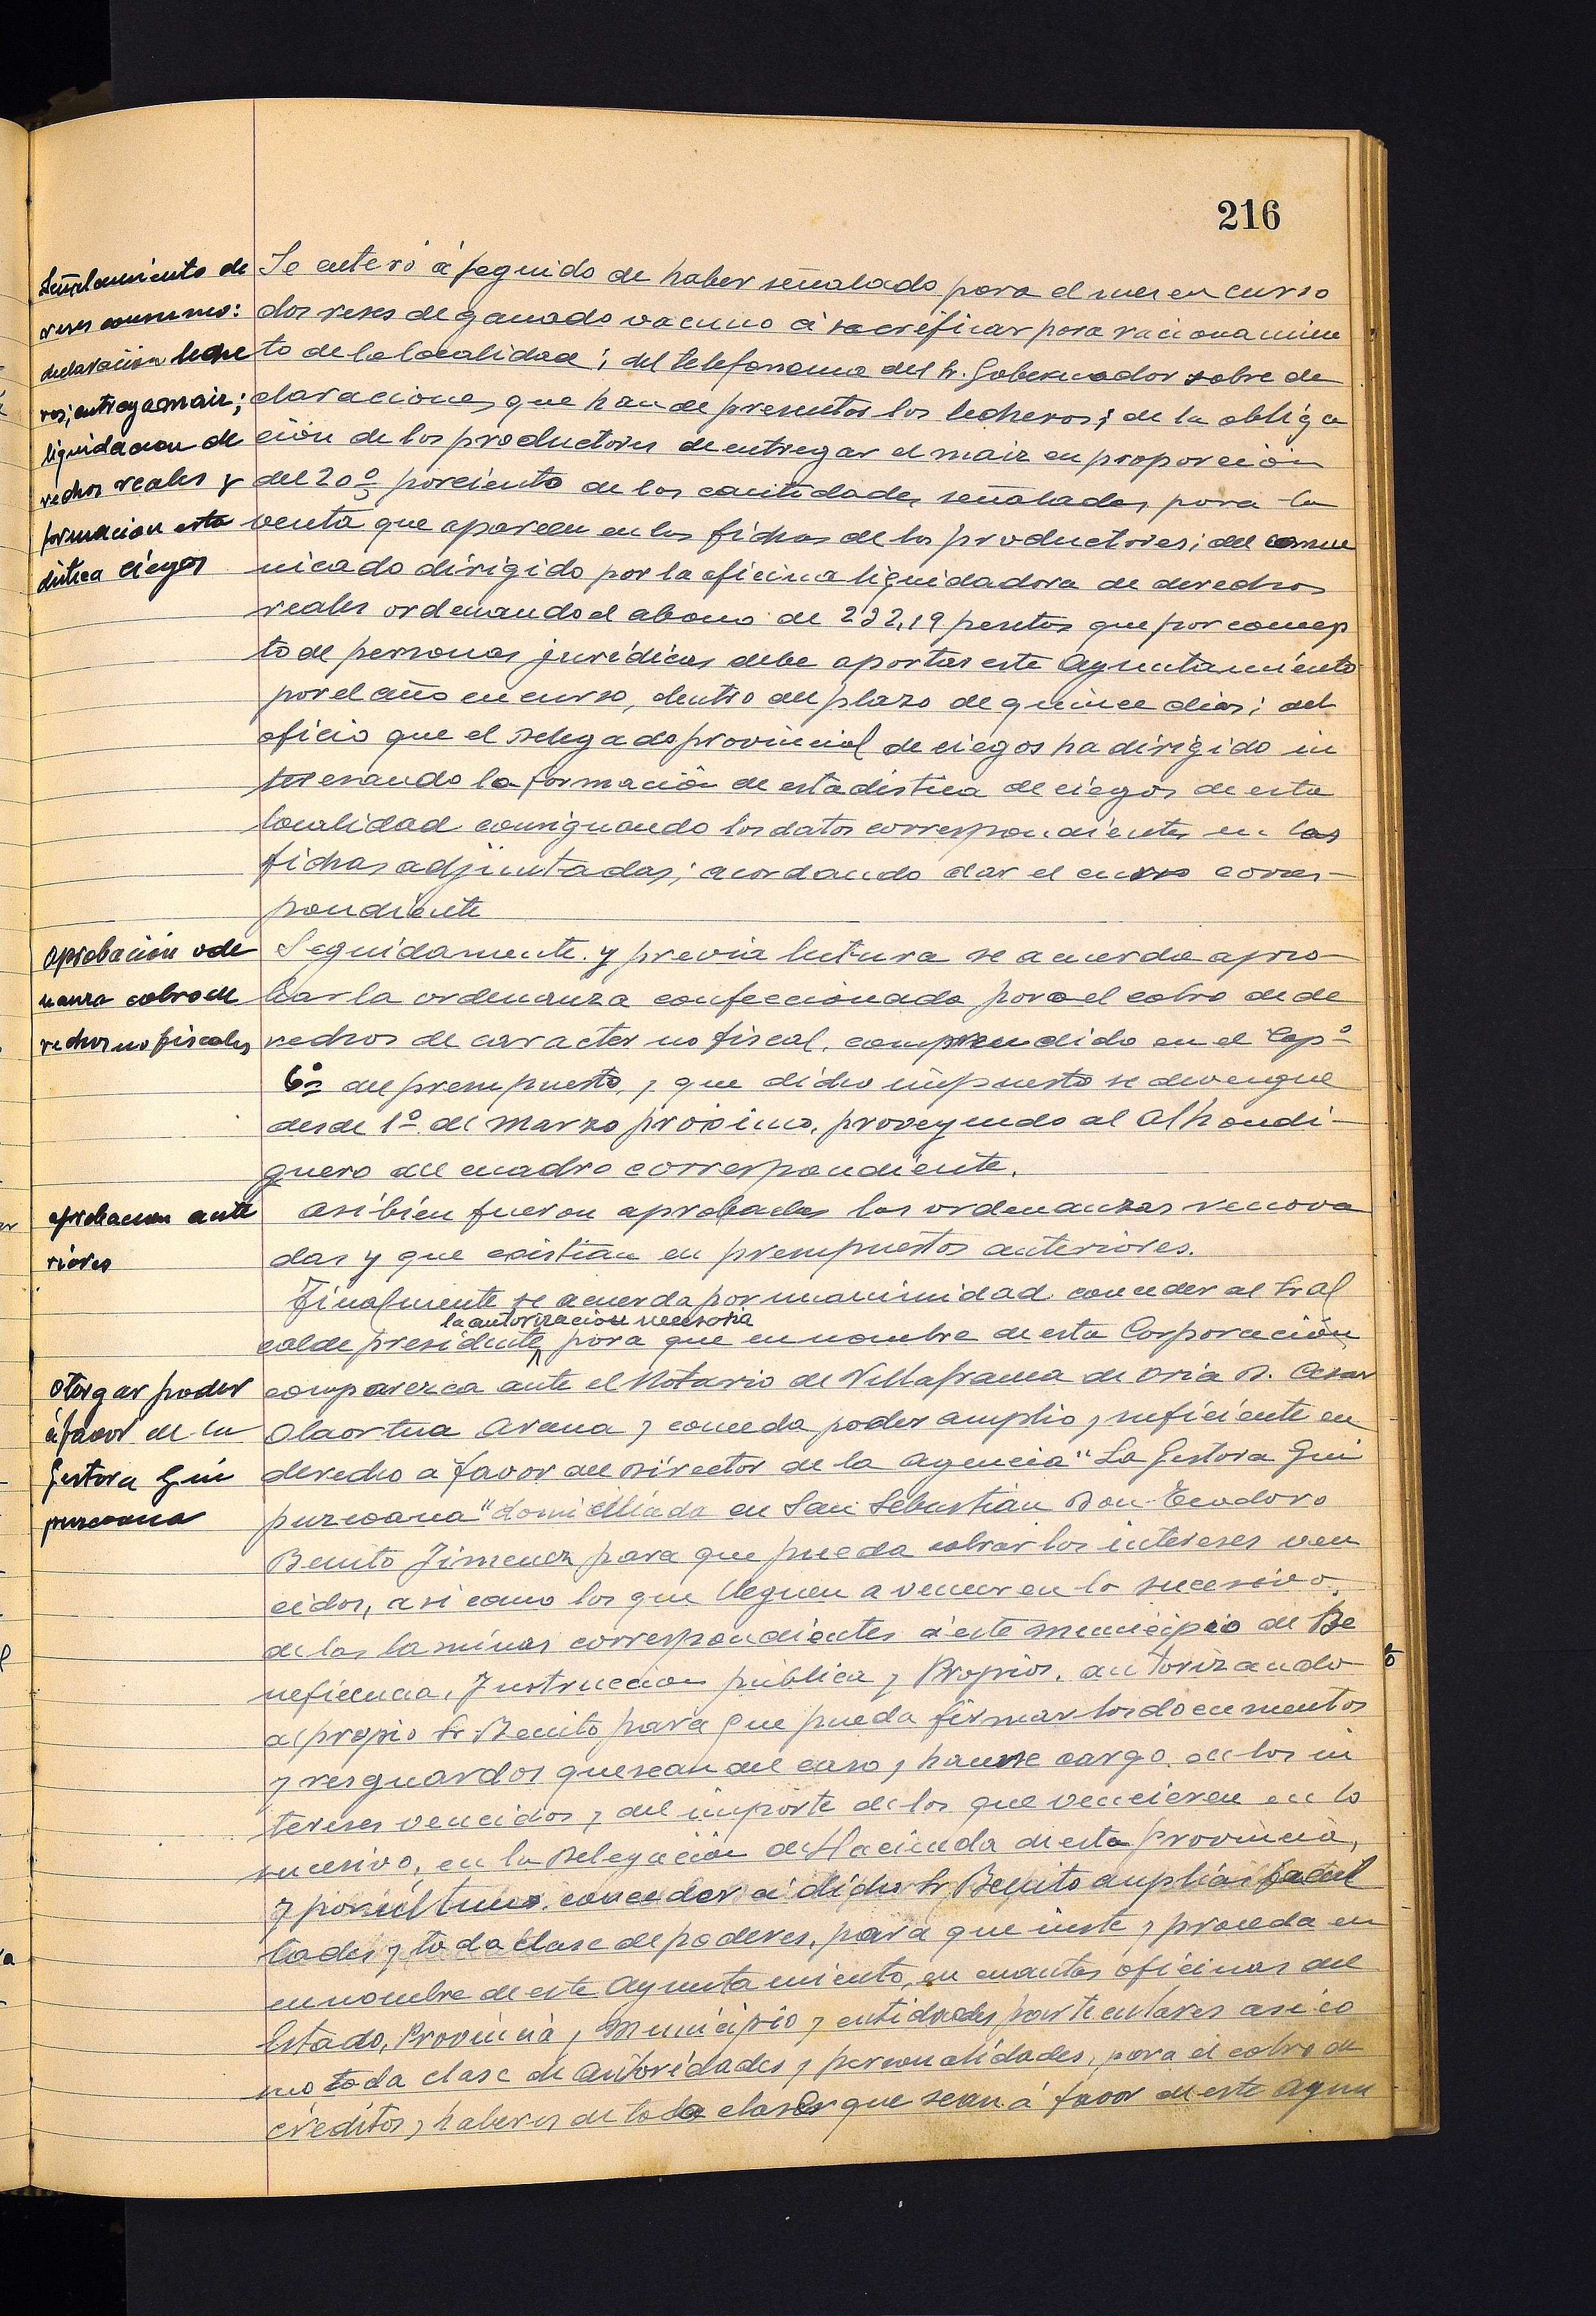 216
Señalamiento de
reses consumo:
declaración leche
ros; entrega maiz;
liquidacion de
rechos reales y
formacion esta
distica ciegos
Se enteró á seguido de haber señalado para el mes en curso
dos reses de ganado vacuno á sacrificar para racionamien
to de la localidad; del telefonema del Sr. Gobernador sobre de
claraciones que han de presentar los lecheros; de la obliga
ción de los productores de entregar el maiz en proporción
del 20º porciento de las cantidades señaladas para la
venta que aparecen en las fichas de los productores; del comu
nicado dirigido por la oficina liquidadora de derechos
reales ordenando el abono de 232,19 pesetas que por concep
to de personas jurídicas debe aportar este Ayuntamiento
por el año en curso, dentro del plazo de quince dias; del
oficio que el Delegado provincial de ciegos ha dirigido in
teresando la formación de estadistica de ciegos de esta
localidad consignando los datos correspondientes en las
fichas adjuntadas; acordando dar el curso corres-
pondiente
aprobación orde
nanza cobro de
rechos no fiscales
Seguidamente y previa lectura se acuerda apro-
bar la ordenanza confeccionada para el cobro de de
rechos de caracter no fiscal, comprendido en el Capº
6º del presupuesto, y que dicho impuesto se devengue
desde 1º de Marzo próximo, proveyendo al Alhondi-
guero del cuadro correspondiente.
aprobacion ante
riores
Asibien fueron aprobadas las ordenanzas renova
das y que existian en presupuestos anteriores.
Finalmente se acuerda por unanimidad conceder al Sr al
la autorización necesaria
calde presidente para que en nombre de esta Corporación
Otorgar poder
á favor de la
Gestora Gui
puzcoana
comparezca ante el Notario de Villafranca de Oria D. Cesar
Olaortua Arana y conceda poder amplio y suficiente en
derecho a favor del Director de la Agencia "La Gestora Gui
puzcoana" domiciliada en San Sebastian Don Teodoro
Benito Jimenez para que pueda cobrar los intereses ven
cidos, asi como los que lleguen a vencer en lo sucesivo,
de las laminas correspondientes á este municipio de Be
neficencia, Instruccion publica y Propios, autorizando
al propio Sr Benito para que pueda firmar los documentos
y resguardos que sean del caso y hacerse cargo de los in
tereses vencidos y del importe de los que vencieren en lo
sucesivo, en la Delegación de Hacienda de esta provincia,
y por ultimo conceder á dicho Sr Benito amplias facul
tades y toda clase de poderes, para que inste y proceda en
en nombre de este Ayuntamiento, en cuantas oficinas del
Estado, Provincia y Municipio y entidades particulares asi co
mo toda clase de autoridades y personalidades, para el cobro de
creditos y haberes de toda clase que sean á favor de este Ayun